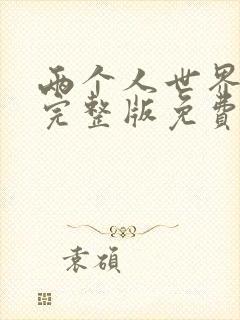 两个人世界
完整版免费
袁硕